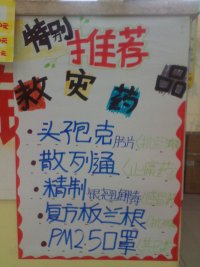 特别推荐
救灾药品
·头孢克 胶片
·散列通 (止痛药)
·精制银翘解毒
·复方板兰根
PM2.5口罩